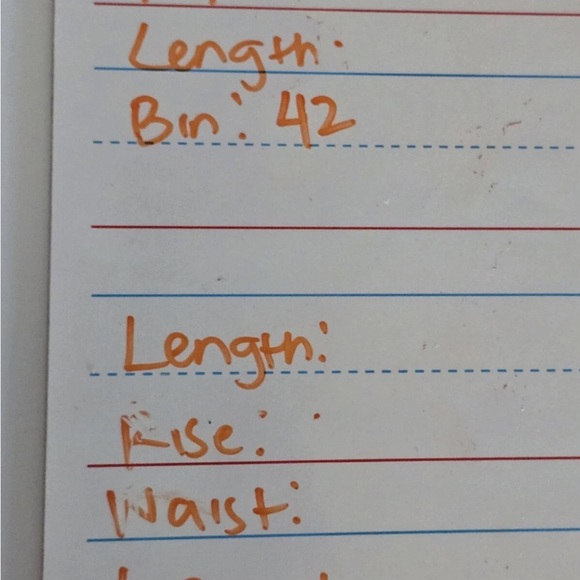 Length:
Bin: 42
Length:
Rise:
Waist: